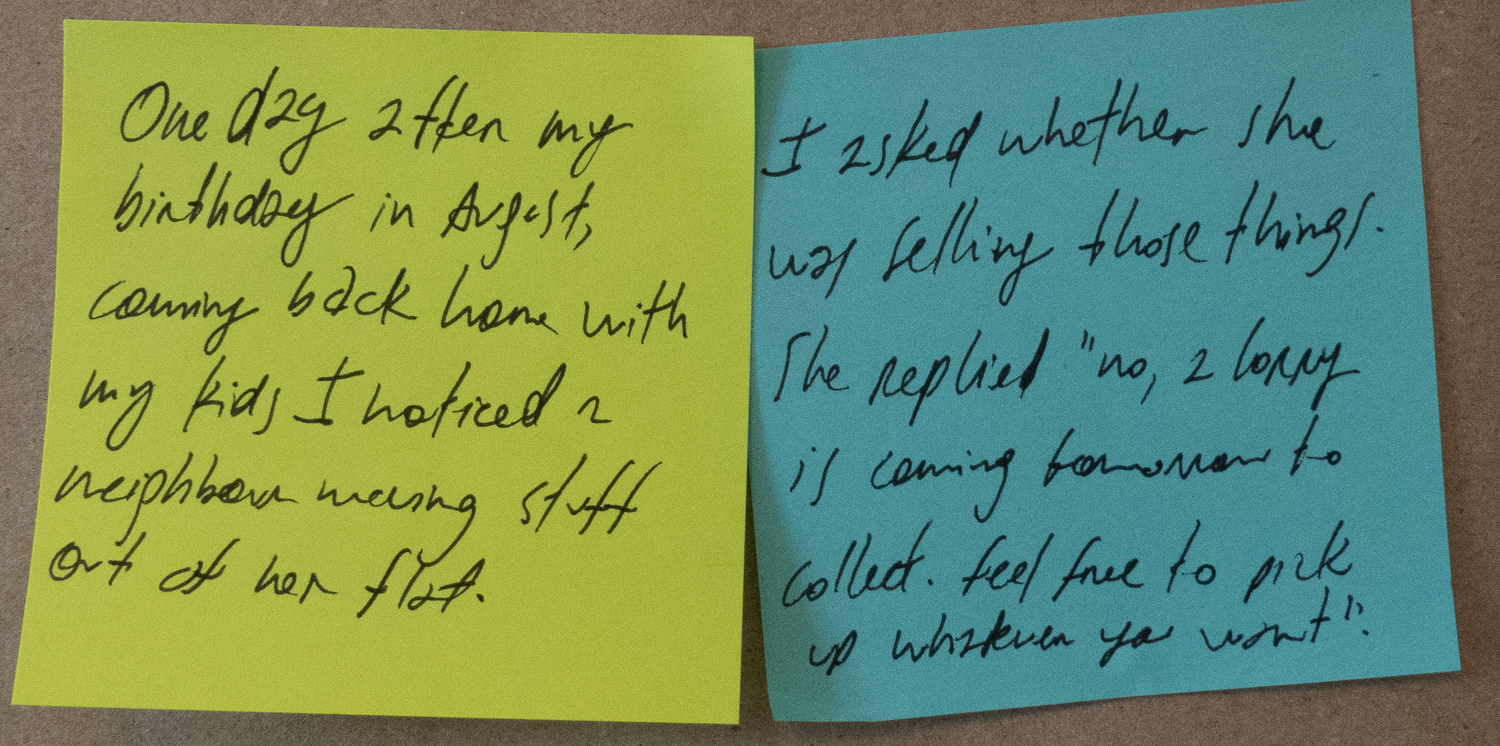 One day after my
birthday in August,
coming back home with
my kids I noticed a
neighbour moving stuff
out of her flat.
I asked whether she
was selling those things.
She replied "no, a lorry
is coming tomorrow to
collect. Feel free to pick
up whatever you want".